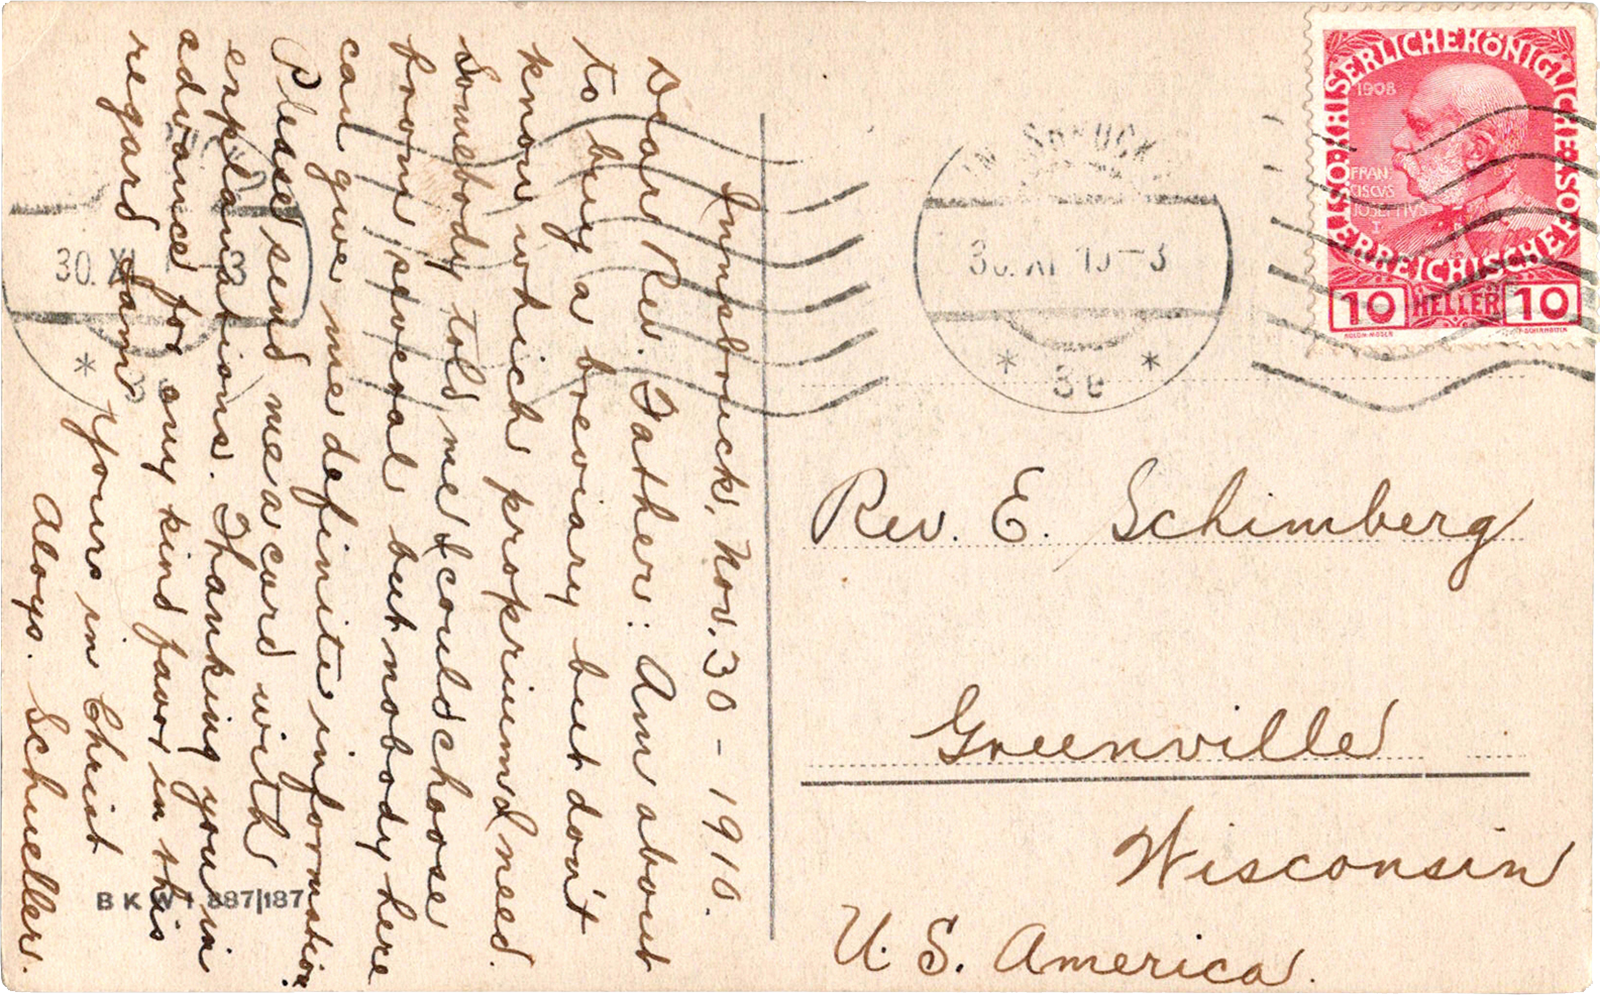 Innsbruck, Nov. 30 - 1910.
Dear Rev. Father: Am about
to buy a breviary but don't
know which proprium I need.
Somebody told me I could choose
from several but nobody here
can give me definite information.
Please send me a card with
explanations. Thanking you in
advance for any kind favor in this
regard I am
Yours in Christ
Aloys. Schueller.
BKWI 887|187
INNSBRUCK
30. XI 10-3
* 3e *
30. X 3
*
KAISERLICHE KÖNIGLICHE ÖSTERREICHISCHE POST
1908
FRAN
CISCVS
IOSEPHVS
I
10 HELLER 10
Rev. E. Schimberg
Greenville
Wisconsin
U. S. America.